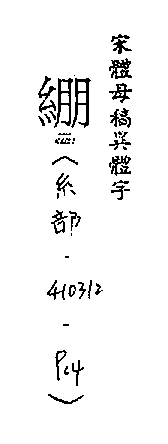 宋體母稿異體字
綳
(糸部-410312-P.4)